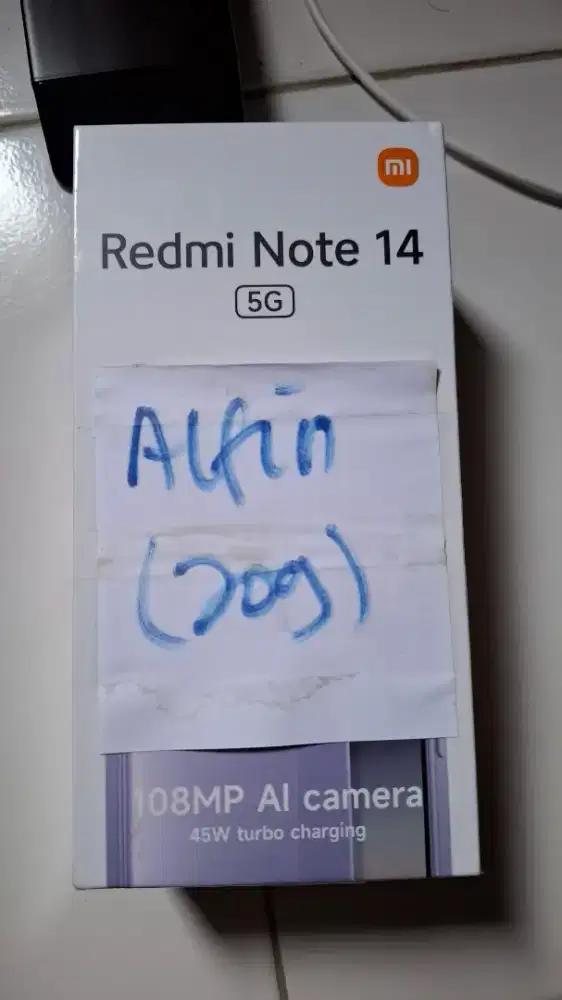 mi
Redmi Note 14
5G
Alfin
(209)
108MP AI camera
45W turbo charging